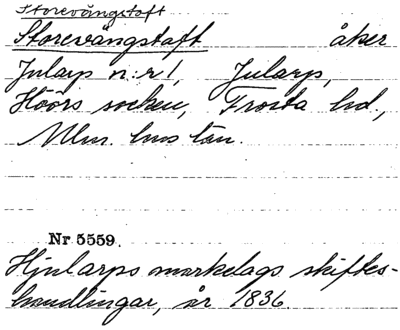 Storevångstoft
Storevångstaft åker
Jularp n:r 1, Jularp,
Höörs socken, Frosta hd.,
Mlm. hus län.
Nr 5559.
Hjularps markelags skiftes-
handlingar, år 1836.